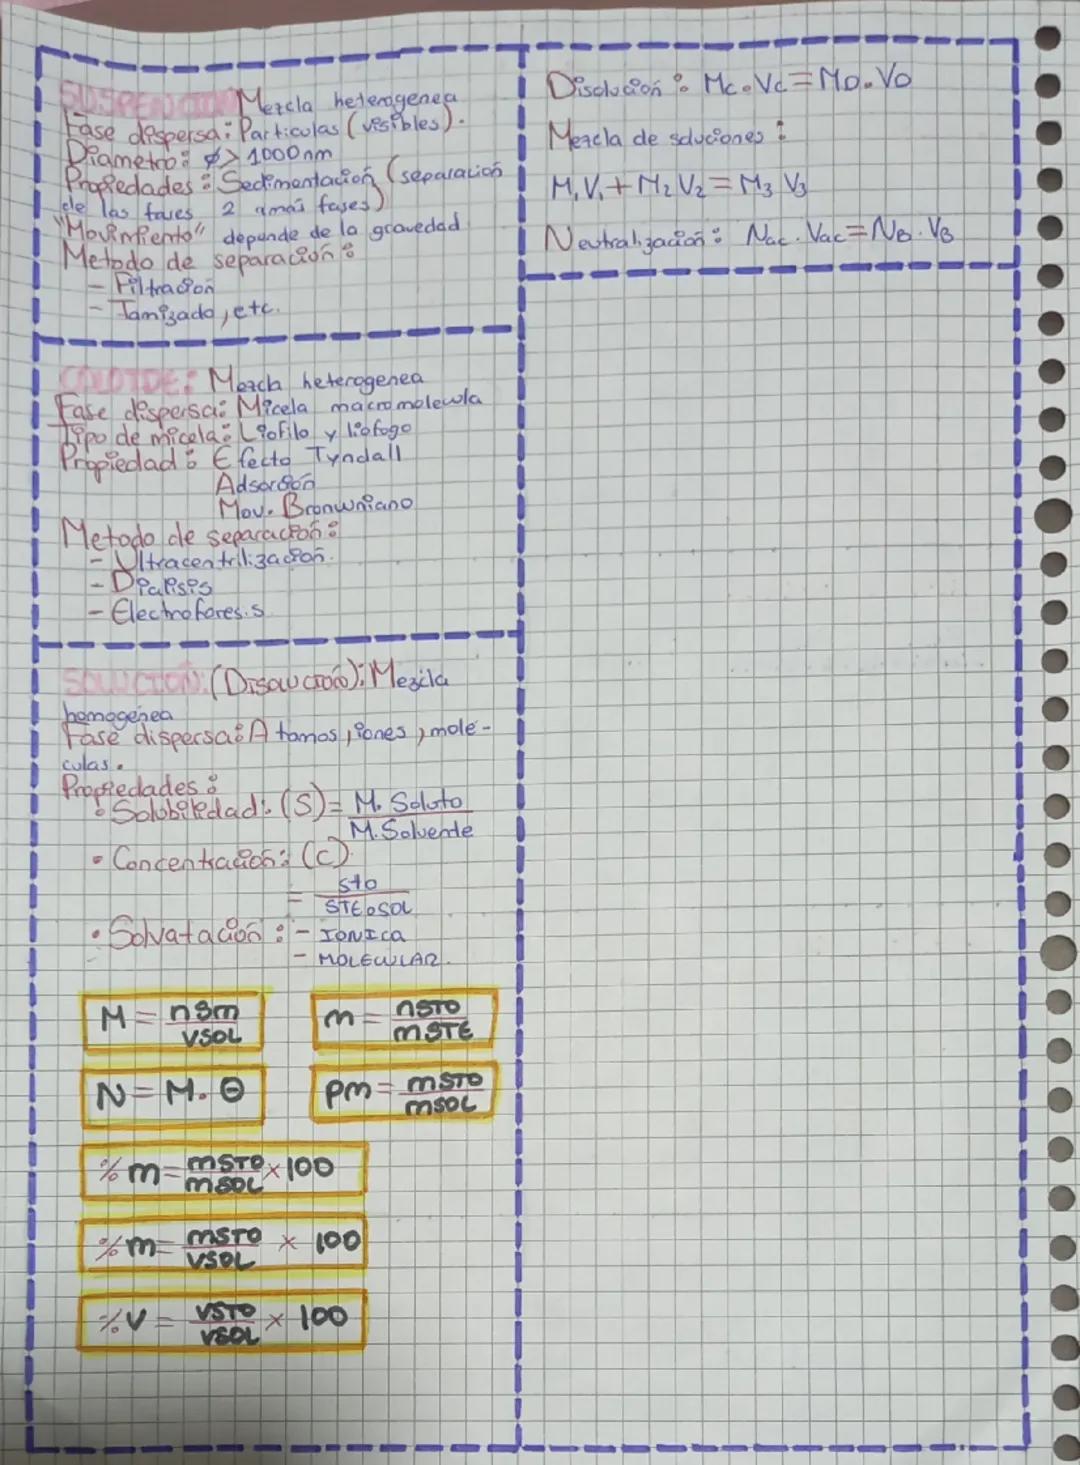 SUSPENCION Mezcla heterogenea
Fase dispersa: Particulas (visibles).
Diametro: ø > 1000nm
Propiedades: Sedimentación (separación
de las faves 2 amás fases)
"Movimiento" depende de la gravedad
Metodo de separación:
- Filtración
- Tamizado, etc.
COLOIDE: Mezcla heterogenea
Fase dispersa: Micela macromolewla
Tipo de micela: Liofilo y liofogo
Propiedad: Efecto Tyndall
Adsorción
Mov. Bronwniano
Metodo de separación:
- Ultracentrilización.
- Dialisis
- Electroforesis
SOLUCION: (Disolución): Mezcla
homogenea
Fase dispersa: Atomos, iones, mole-
culas.
Propiedades:
• Solubilidad: (S) = M. Soluto
M. Solvente
• Concentración: (C)
= sto
STE o SOL
• Solvatación: - IONICA
- MOLECULAR.
M = nsm
VSOL
m = nSTO
mSTE
N = M. Θ
Pm = mSTO
mSOL
% m = mSTO x 100
mSOL
% m = mSTO x 100
VSOL
% V = VSTO x 100
VSOL
Disolución: Mc . Vc = MD . VD
Mezcla de soluciones:
M₁V₁ + M₂V₂ = M₃V₃
Neutralización: Nac . Vac = NB . VB